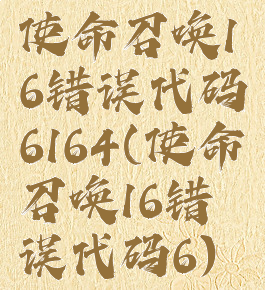 使命召唤1
6错误代码
6164(使命
召唤16错
误代码6)